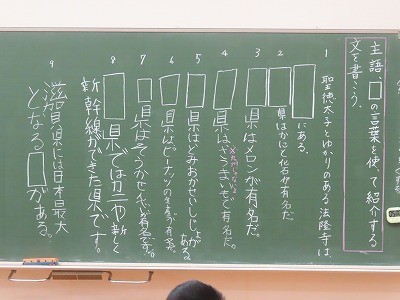 主語、□の言葉を使って紹介する
文を書こう。
1 聖徳太子とゆかりのある法隆寺は、
□にある。
2 □県はかにと化石が有名だ
3 □県はメロンが有名だ。
4 □県は
5 □県はとみおかせいしじょうがある。
6 □県はピーナッツの生産が有名。
7 □県はそうかせんべいが有名だ。
8 □県では
新しく
新幹線ができた県です。
9 滋賀県には日本最大
となる□がある。